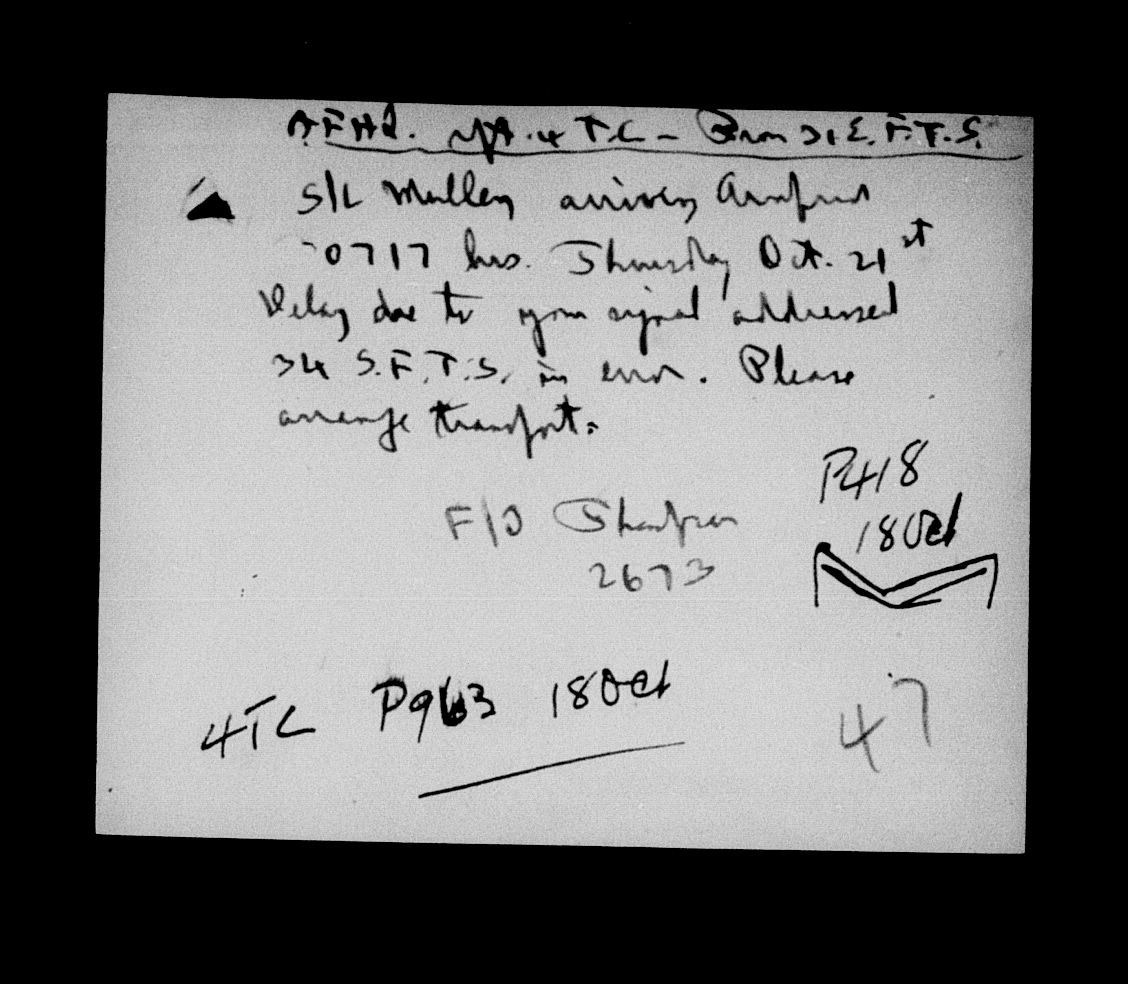 AFHQ. rpt. 4 T.C - From 31 E.F.T.S.
S/L Mulley arriving Arnprior
0717 hrs. Thursday Oct. 21st
Delay due to your signal addressed
34 S.F.T.S. in error. Please
arrange transport.
P418
F/O
18 Oct
2673
4TC P963 18 Oct
47